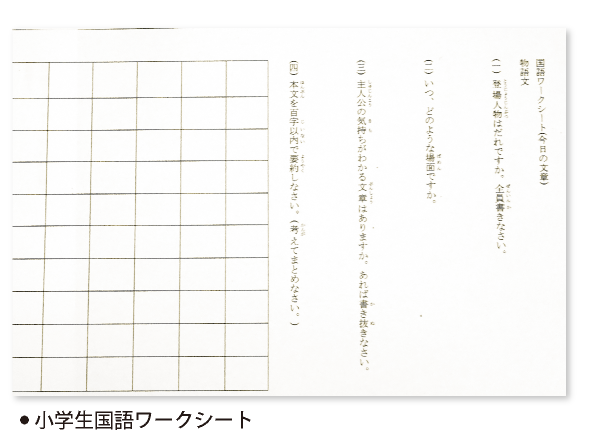 国語ワークシート(今日の文章)
物語文
(一) 登場人物はだれですか。全員書きなさい。
(二) いつ、どのような場面ですか。
(三) 主人公の気持ちがわかる文章はありますか。あれば書き抜きなさい。
(四) 本文を百字以内で要約しなさい。(考えてまとめなさい。)
●小学生国語ワークシート